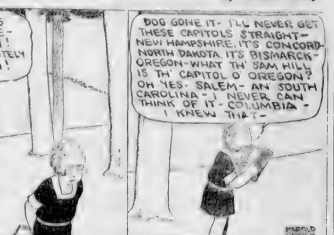 E-
!
TELY
!
DOG GONE IT- I'LL NEVER GET
THESE CAPITOLS STRAIGHT-
NEW HAMPSHIRE, IT'S CONCORD-
NORTH DAKOTA IT'S BISMARCK-
OREGON-WHAT TH' SAM HILL
IS TH' CAPITOL O' OREGON?
OH YES- SALEM- AN SOUTH
CAROLINA- NEVER CAN
THINK OF IT- COLUMBIA-
I KNEW THAT-
HAROLD